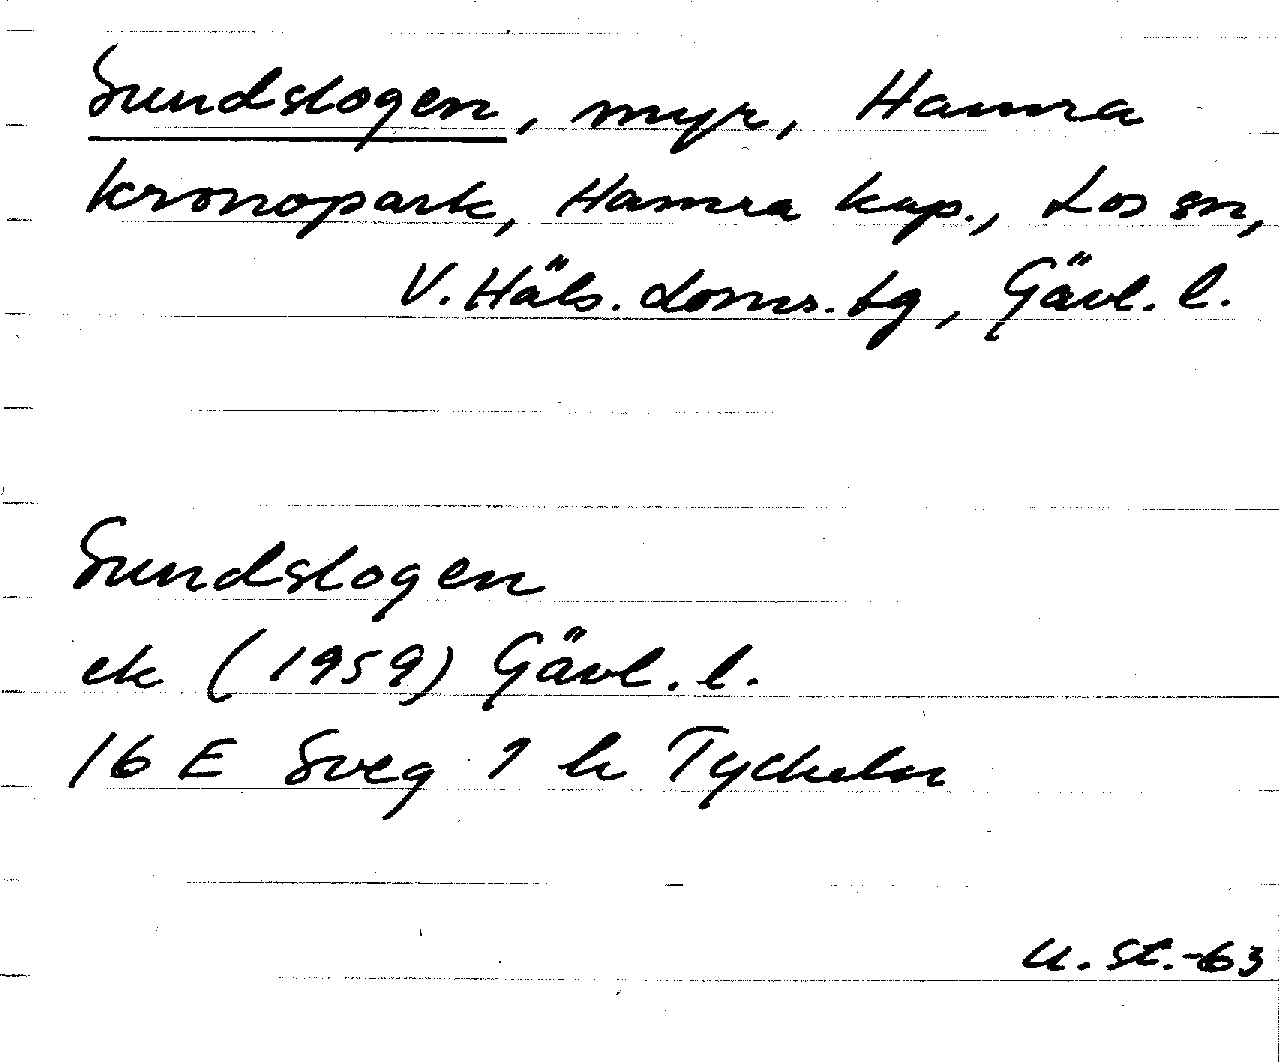 Sundslogen, myr, Hamra
kronopark, Hamra kap., Los sn,
V. Häls. doms. tg, Gävl. l.
Sundslogen
ek (1959) Gävl. l.
16 E Sveg 1 h Tyckeln
U. St.-63